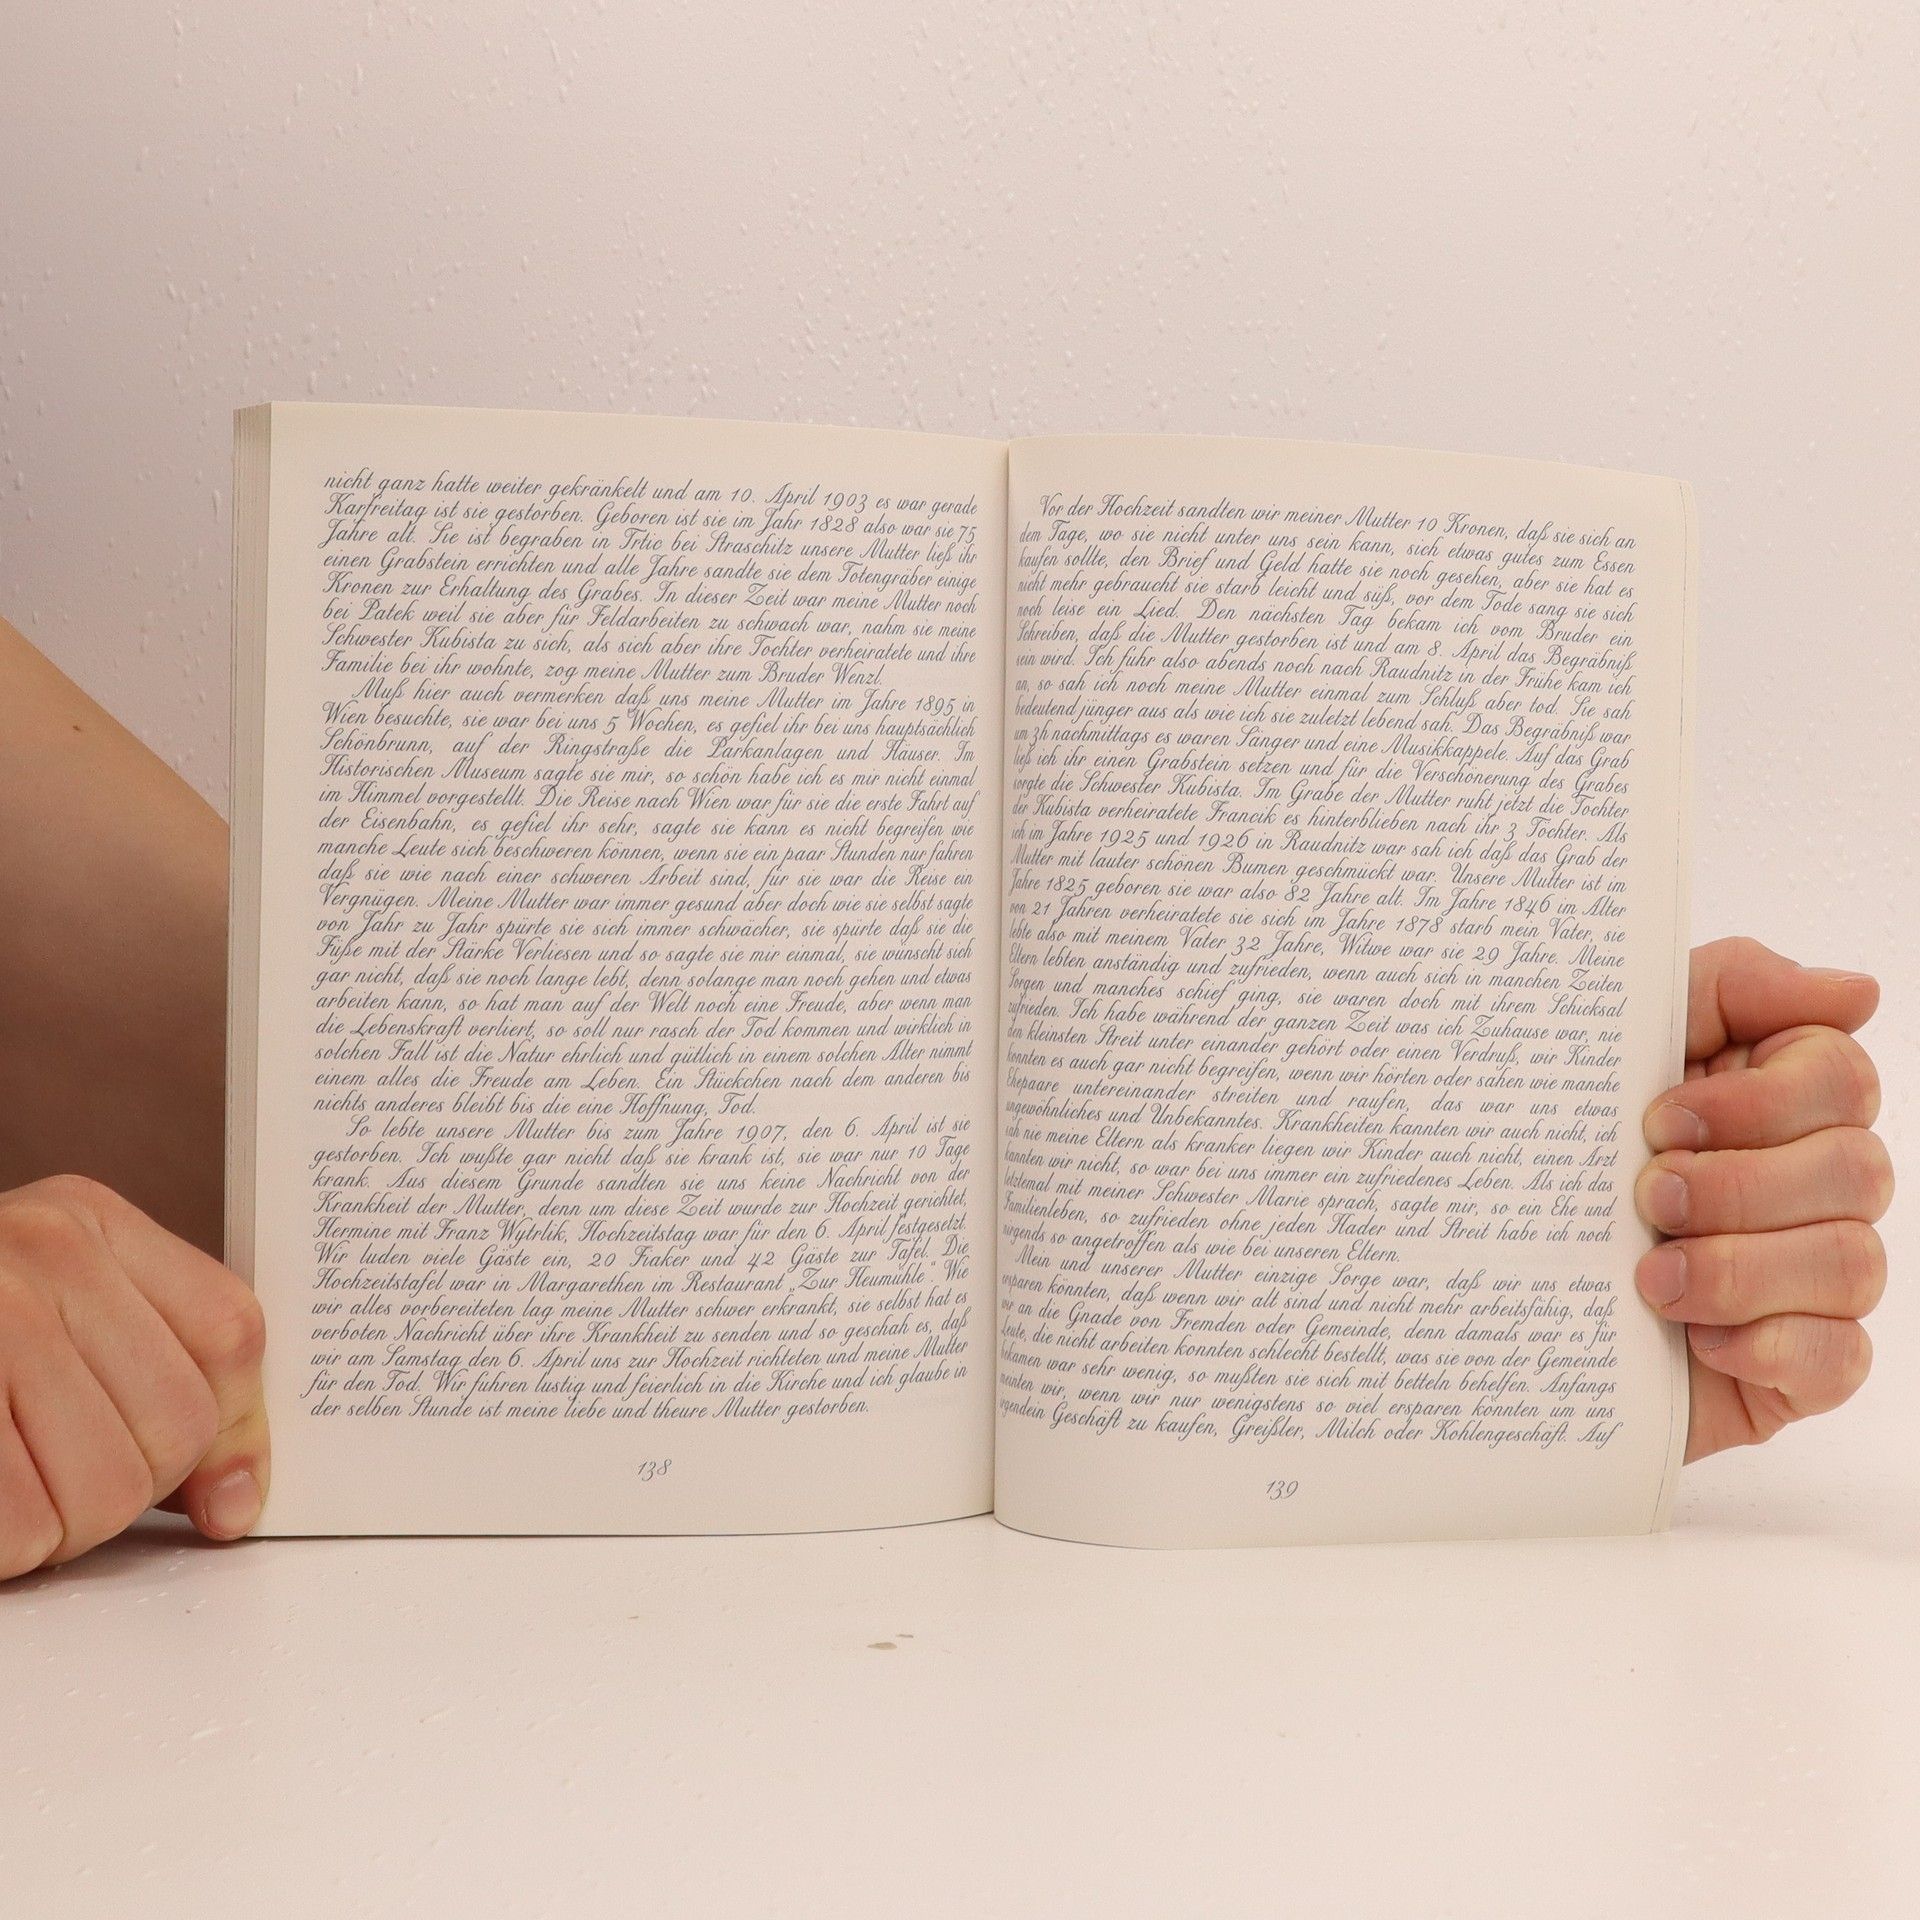 nicht ganz hatte weiter gekränkelt und am 10. April 1903 es war gerade
Karfreitag ist sie gestorben. Geboren ist sie im Jahr 1828 also war sie 75
Jahre alt. Sie ist begraben in Trtic bei Straschitz unsere Mutter ließ ihr
einen Grabstein errichten und alle Jahre sandte sie dem Totengräber einige
Kronen zur Erhaltung des Grabes. In dieser Zeit war meine Mutter noch
bei Patek weil sie aber für Feldarbeiten zu schwach war, nahm sie meine
Schwester Kubista zu sich, als sich aber ihre Tochter verheiratete und ihre
Familie bei ihr wohnte, zog meine Mutter zum Bruder Wenzl.
Muß hier auch vermerken daß uns meine Mutter im Jahre 1895 in
Wien besuchte, sie war bei uns 5 Wochen, es gefiel ihr bei uns hauptsächlich
Schönbrunn, auf der Ringstraße die Parkanlagen und Häuser. Im
Historischen Museum sagte sie mir, so schön habe ich es mir nicht einmal
im Himmel vorgestellt. Die Reise nach Wien war für sie die erste Fahrt auf
der Eisenbahn, es gefiel ihr sehr, sagte sie kann es nicht begreifen wie
manche Leute sich beschweren können, wenn sie ein paar Stunden nur fahren
daß sie wie nach einer schweren Arbeit sind, für sie war die Reise ein
Vergnügen. Meine Mutter war immer gesund aber doch wie sie selbst sagte
von Jahr zu Jahr spürte sie sich immer schwächer, sie spürte daß sie die
Füße mit der Stärke Verliesen und so sagte sie mir einmal, sie wünscht sich
gar nicht, daß sie noch lange lebt, denn solange man noch gehen und etwas
arbeiten kann, so hat man auf der Welt noch eine Freude, aber wenn man
die Lebenskraft verliert, so soll nur rasch der Tod kommen und wirklich in
solchen Fall ist die Natur ehrlich und gütlich in einem solchen Alter nimmt
einem alles die Freude am Leben. Ein Stückchen nach dem anderen bis
nichts anderes bleibt bis die eine Hoffnung, Tod.
So lebte unsere Mutter bis zum Jahre 1907, den 6. April ist sie
gestorben. Ich wußte gar nicht daß sie krank ist, sie war nur 10 Tage
krank. Aus diesem Grunde sandten sie uns keine Nachricht von der
Krankheit der Mutter, denn um diese Zeit wurde zur Hochzeit gerichtet,
Hermine mit Franz Wytrlik, Hochzeitstag war für den 6. April festgesetzt.
Wir luden viele Gäste ein, 20 Fiaker und 42 Gäste zur Tafel. Die
Hochzeitstafel war in Margarethen im Restaurant „Zur Heumühle“. Wie
wir alles vorbereiteten lag meine Mutter schwer erkrankt, sie selbst hat es
verboten Nachricht über ihre Krankheit zu senden und so geschah es, daß
wir am Samstag den 6. April uns zur Hochzeit richteten und meine Mutter
für den Tod. Wir fuhren lustig und feierlich in die Kirche und ich glaube in
der selben Stunde ist meine liebe und theure Mutter gestorben.
138
Vor der Hochzeit sandten wir meiner Mutter 10 Kronen, daß sie sich an
dem Tage, wo sie nicht unter uns sein kann, sich etwas gutes zum Essen
kaufen sollte, den Brief und Geld hatte sie noch gesehen, aber sie hat es
nicht mehr gebraucht sie starb leicht und süß, vor dem Tode sang sie sich
noch leise ein Lied. Den nächsten Tag bekam ich vom Bruder ein
Schreiben, daß die Mutter gestorben ist und am 8. April das Begräbniß
sein wird. Ich fuhr also abends noch nach Raudnitz in der Frühe kam ich
an, so sah ich noch meine Mutter einmal zum Schluß aber tod. Sie sah
bedeutend jünger aus als wie ich sie zuletzt lebend sah. Das Begräbniß war
um 3h nachmittags es waren Sänger und eine Musikkappele. Auf das Grab
ließ ich ihr einen Grabstein setzen und für die Verschönerung des Grabes
sorgte die Schwester Kubista. Im Grabe der Mutter ruht jetzt die Tochter
der Kubista verheiratete Francik es hinterblieben nach ihr 3 Töchter. Als
ich im Jahre 1925 und 1926 in Raudnitz war sah ich daß das Grab der
Mutter mit lauter schönen Bumen geschmückt war. Unsere Mutter ist im
Jahre 1825 geboren sie war also 82 Jahre alt. Im Jahre 1846 im Alter
von 21 Jahren verheiratete sie sich im Jahre 1878 starb mein Vater, sie
lebte also mit meinem Vater 32 Jahre, Witwe war sie 29 Jahre. Meine
Eltern lebten anständig und zufrieden, wenn auch sich in manchen Zeiten
Sorgen und manches schief ging, sie waren doch mit ihrem Schicksal
zufrieden. Ich habe während der ganzen Zeit was ich Zuhause war, nie
den kleinsten Streit unter einander gehört oder einen Verdruß, wir Kinder
konnten es auch gar nicht begreifen, wenn wir hörten oder sahen wie manche
Ehepaare untereinander streiten und raufen, das war uns etwas
ungewöhnliches und Unbekanntes. Krankheiten kannten wir auch nicht, ich
sah nie meine Eltern als kranker liegen wir Kinder auch nicht, einen Arzt
kannten wir nicht, so war bei uns immer ein zufriedenes Leben. Als ich das
letztemal mit meiner Schwester Marie sprach, sagte mir, so ein Ehe und
Familienleben, so zufrieden ohne jeden Hader und Streit habe ich noch
nirgends so angetroffen als wie bei unseren Eltern.
Mein und unserer Mutter einzige Sorge war, daß wir uns etwas
ersparen könnten, daß wenn wir alt sind und nicht mehr arbeitsfähig, daß
wir an die Gnade von Fremden oder Gemeinde, denn damals war es für
Leute, die nicht arbeiten konnten schlecht bestellt, was sie von der Gemeinde
bekamen war sehr wenig, so mußten sie sich mit betteln behelfen. Anfangs
meinten wir, wenn wir nur wenigstens so viel ersparen könnten um uns
irgendein Geschäft zu kaufen, Greißler, Milch oder Kohlengeschäft. Auf
139